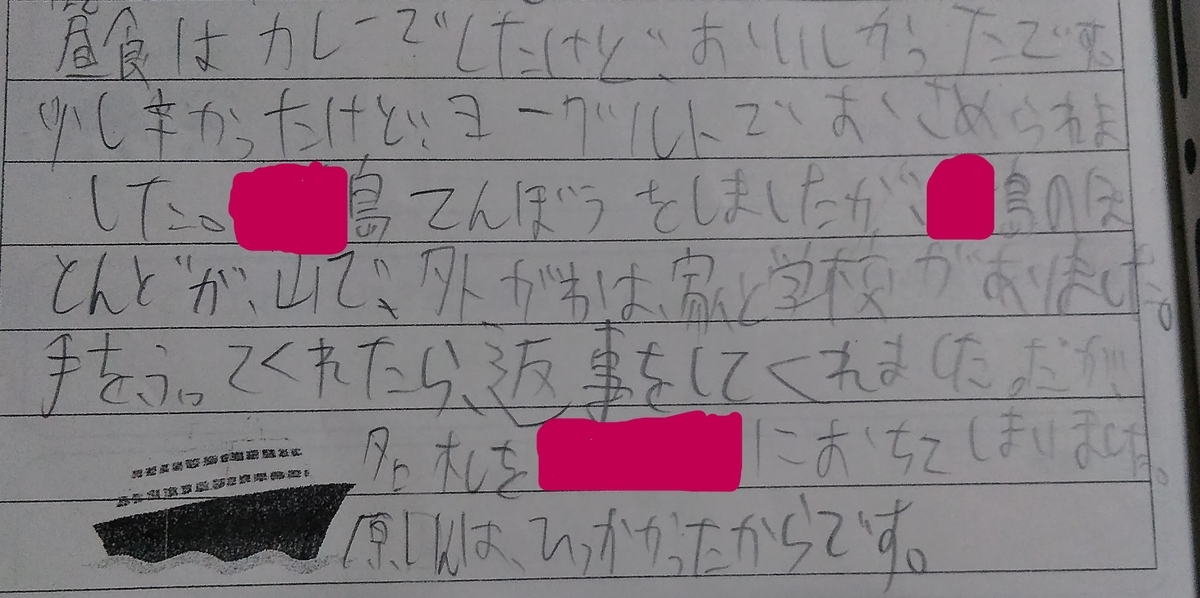 昼食はカレーでしたけど、おいしかったです。
少し辛かったけど、ヨーグルトでおさめられま
した。島てんぼうをしましたが、島のほ
とんどが、山で、外がわは、家と学校がありました。
手をふってくれたら、返事をしてくれましただが、
名札をにおちてしまいました。
原いんは、ひっかかったからです。